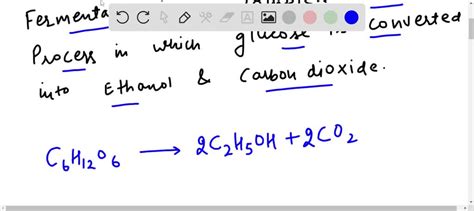 Fermenta
Process in which glucose is converted
into Ethanol & Carbon dioxide.
C₆H₁₂O₆ ⟶ 2C₂H₅OH + 2CO₂